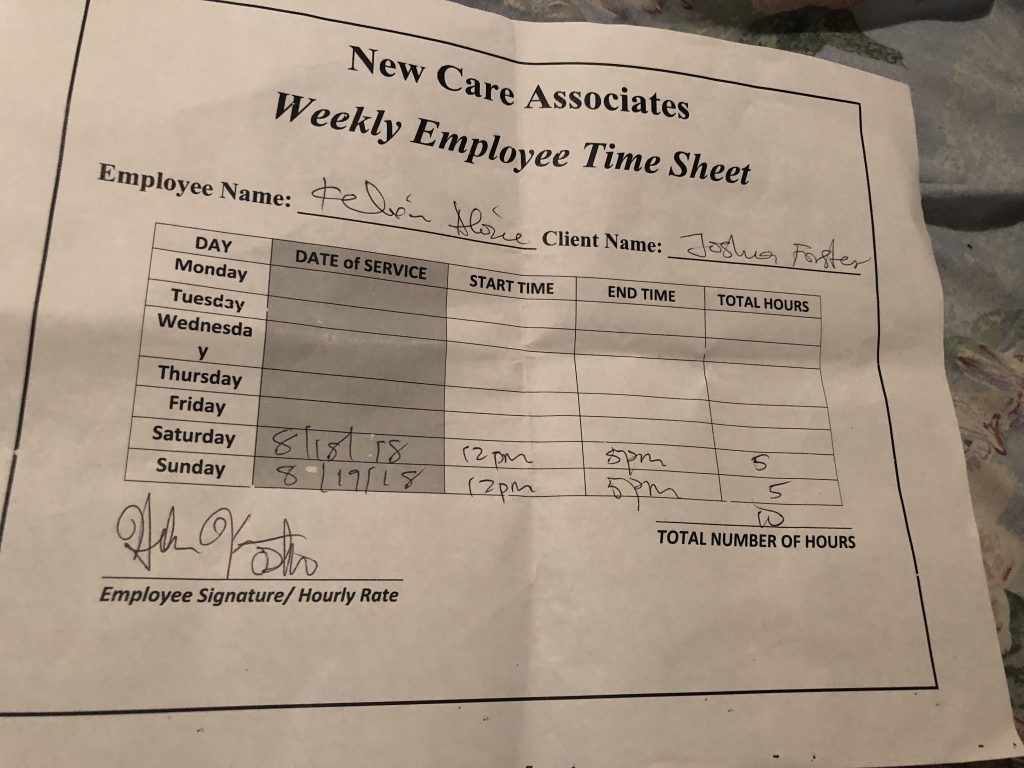 New Care Associates
Weekly Employee Time Sheet
Employee Name: Client Name: Joshua Forster
DAY DATE of SERVICE START TIME END TIME TOTAL HOURS
Monday
Tuesday
Wednesda
y
Thursday
Friday
Saturday 8/18/18 12pm 5pm 5
Sunday 8/19/18 12pm 5pm 5
10
TOTAL NUMBER OF HOURS
Employee Signature/ Hourly Rate